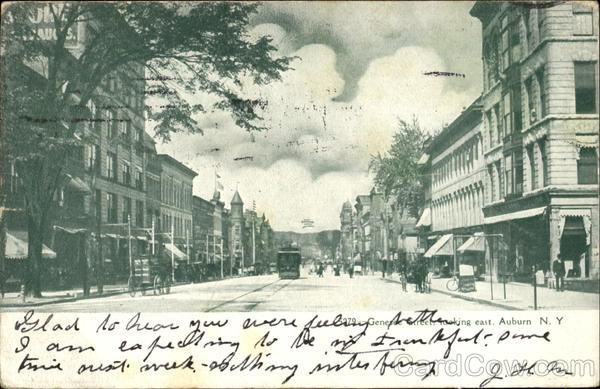 379. Genesee Street, looking east. Auburn N. Y.
Glad to hear you were feeling better
I am expecting to be in Frankfort some
time next week
CardCow.com